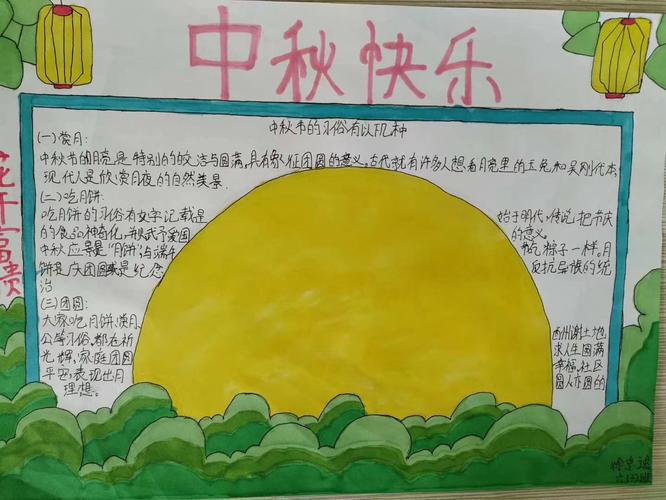 中秋快乐
花开富贵
中秋节的习俗有以几种
(一)赏月:
中秋节的月亮是特别的皎洁与圆满,具有象征团圆的意义。古代就有许多人想看月亮里的玉兔和吴刚代本,
现代人是欣赏月夜的自然美景.
(二)吃月饼:
吃月饼的习俗有文字记载是 始于明代,传说把节庆
的食品神奇化,并赋予爱国 的意义。
中秋应景是"月饼"与端午 吃粽子一样。月
饼是庆团圆或是纪念 反抗异族的统
治
(三)团圆:
大家吃月饼、赏月、 谢土地
公等习俗,都在祈 求人生圆满
光辉,家庭团圆 幸福,社区
平安,表现出月 圆人亦圆的
理想。